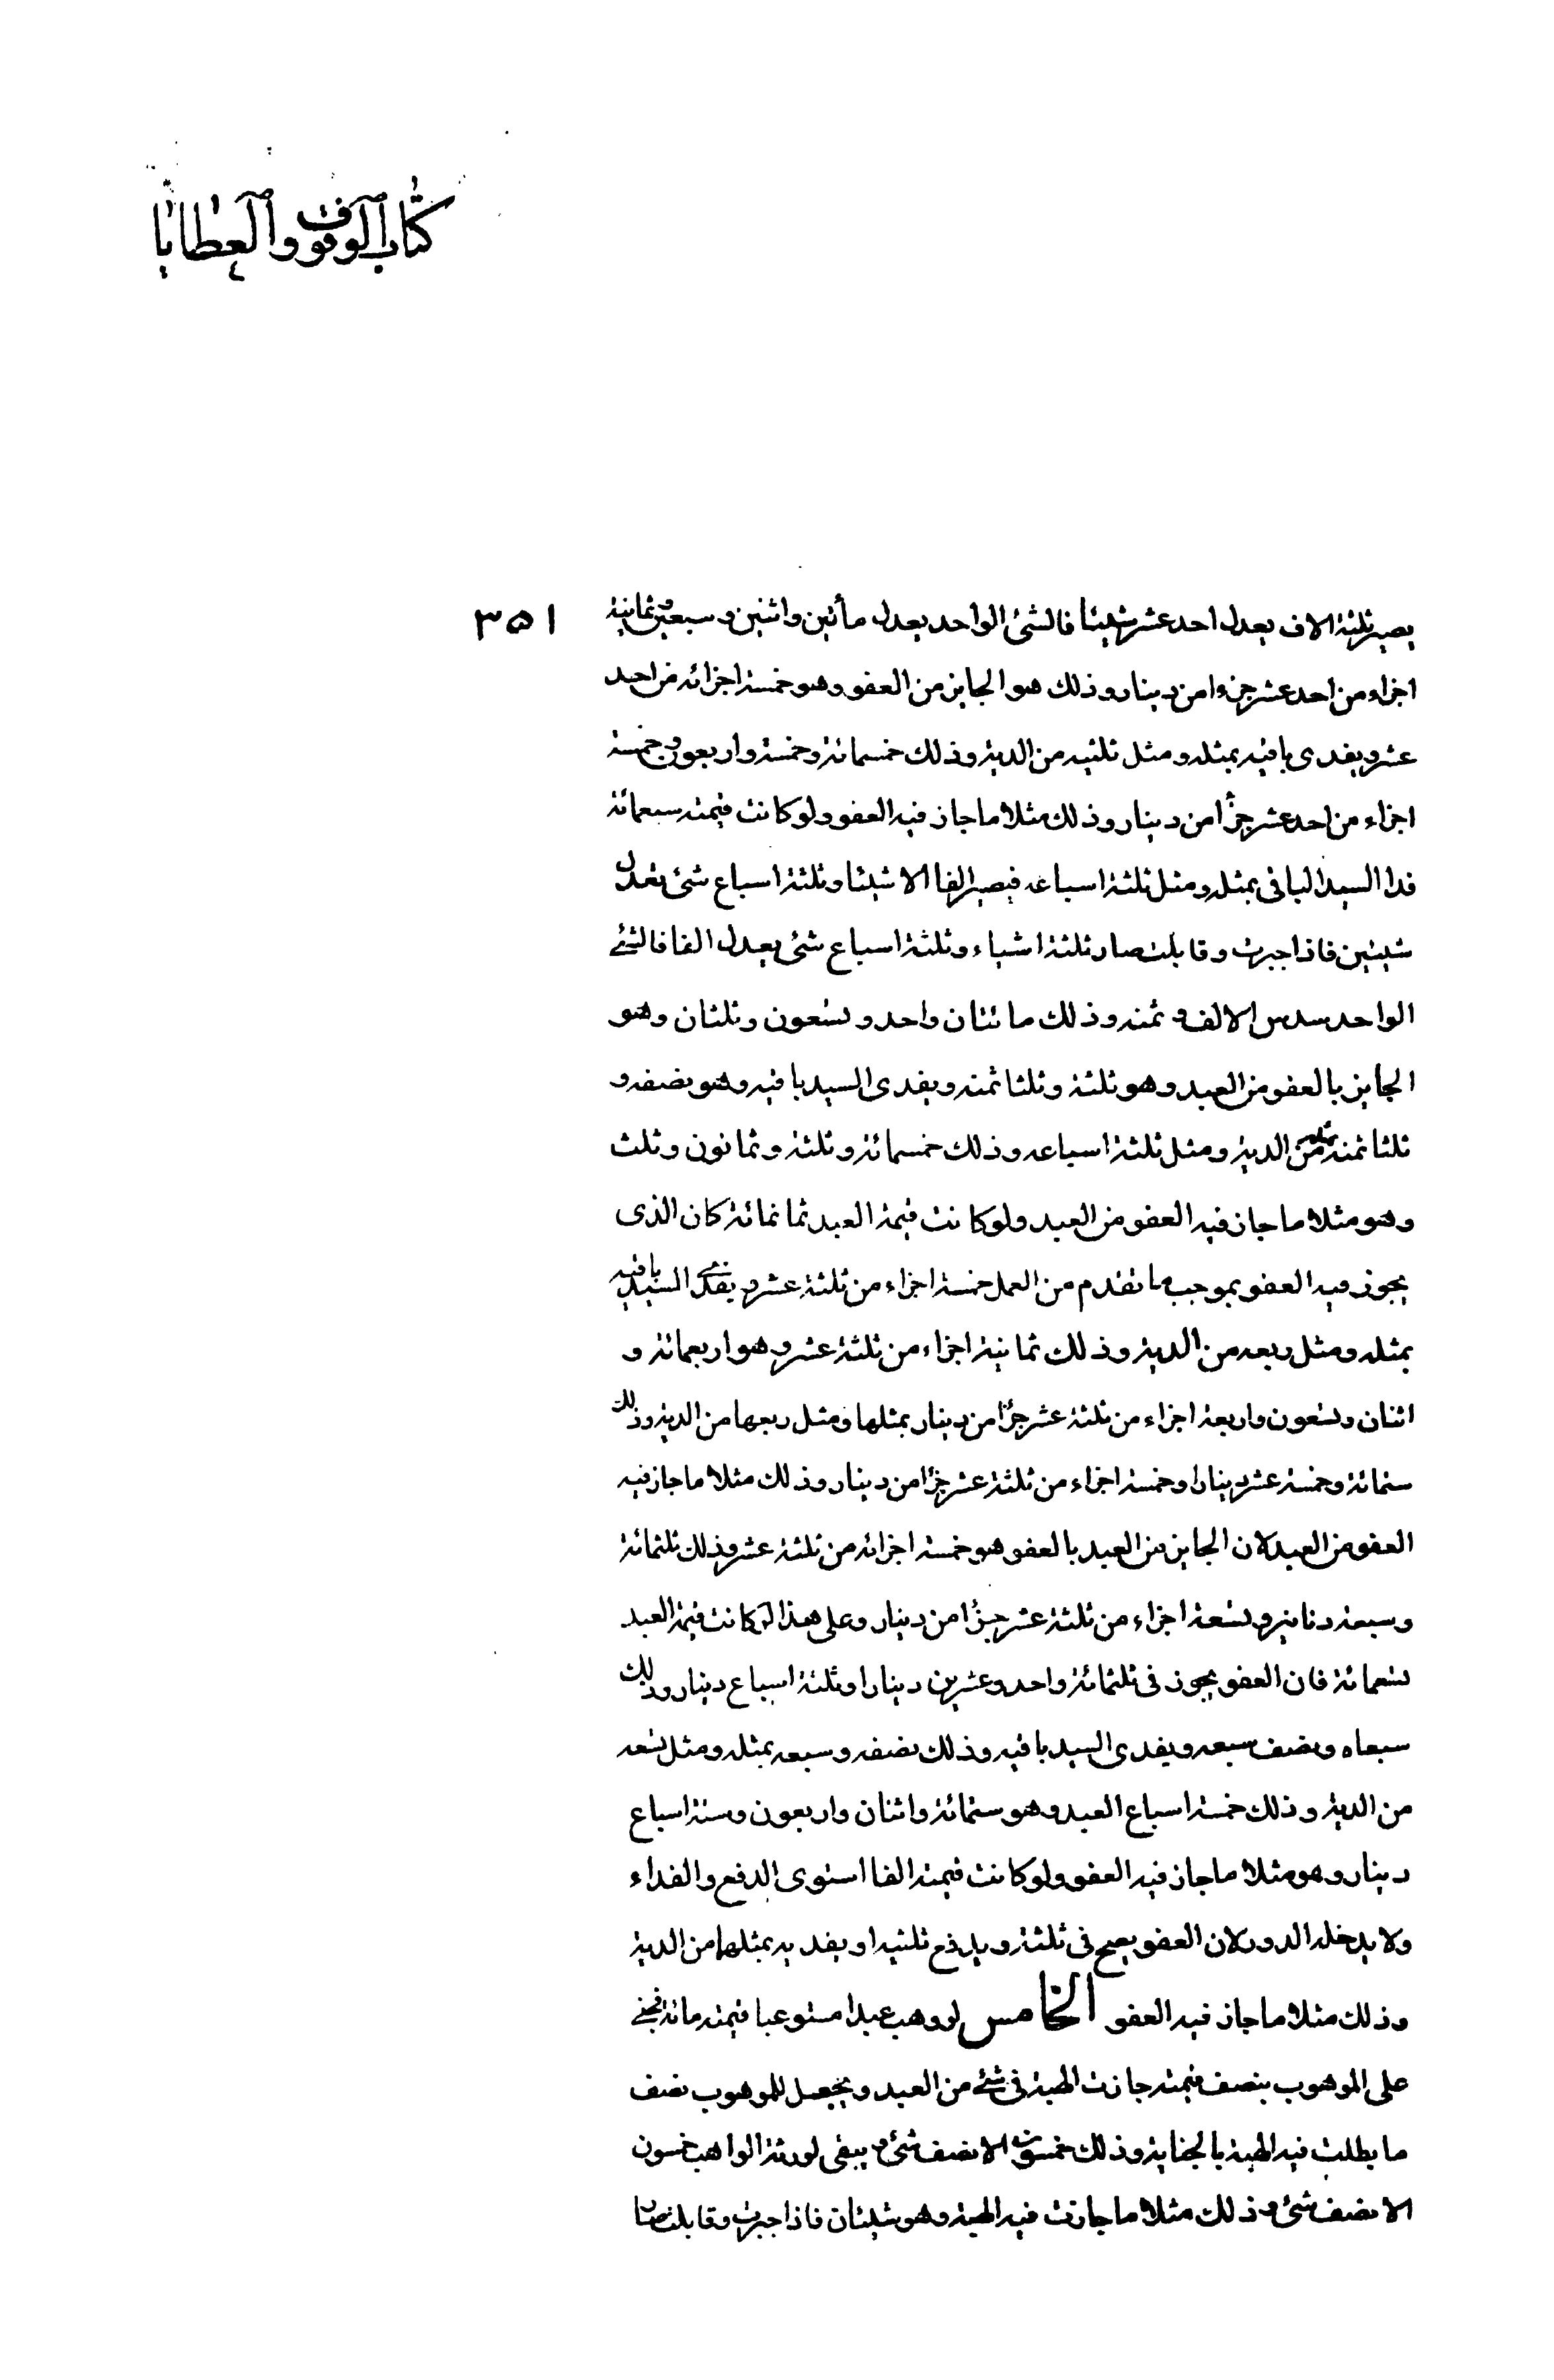 كتاب الوقوف والعطايا
٣٥١
يصير ثلثة الاف يعدل احد عشر شيئا فالشئ الواحد يعدل مأتين واثنين وسبعين وثمانية
اجزاء من احد عشر جزءا من دينار وذلك هو الجايز من العفو وهو خمسة اجزائه من احد
عشر ويفدى باقيه بمثله ومثل ثلثيه من الدية وذلك خمسمائة وخمسة واربعون وخمسة
اجزاء من احد عشر جزأ من دينار وذلك مثلا ما جاز فيه العفو ولو كانت قيمته سبعمائة
فدا السيد الباقى بمثله ومثل ثلثة اسباعه فيصير الفا الا شيئا وثلثة اسباع شئ يعدل
شيئين فاذا جبرت وقابلت صار ثلثة اشياء وثلثة اسباع شئ يعدل الفا فالشئ
الواحد سدس الالف وثمنه وذلك مائتان واحد وتسعون وثلثان وهو
الجايز بالعفو من العبد وهو ثلثة وثلثا ثمنه ويفدى السيد باقيه وهو نصفه و
ثلثا ثمنه بمثله من الدية ومثل ثلثة اسباعه وذلك خمسمائة وثلثة وثمانون وثلث
وهو مثلا ما جاز فيه العفو من العبد ولو كانت قيمة العبد ثمانمائة كان الذى
يجوز فيه العفو بموجب ما تقدم من العمل خمسة اجزاء من ثلثة عشر ويفدى السيد باقيه
بمثله ومثل ربعه من الدية وذلك ثمانية اجزاء من ثلثة عشر وهو اربعمائة و
اثنان وتسعون واربعة اجزاء من ثلثة عشر جزأ من دينار بمثلها ومثل ربعها من الدية وذلك
ستمائة وخمسة عشر دينارا وخمسة اجزاء من ثلثة عشر جزأ من دينار وذلك مثلا ما جاز فيه
العفو من العبد لان الجايز من العبد بالعفو هو خمسة اجزائه من ثلثة عشر وذلك ثلثمائة
وسبعة دنانير وتسعة اجزاء من ثلثة عشر جزأ من دينار وعلى هذا لو كانت قيمة العبد
تسعمائة فان العفو يجوز فى ثلثمائة واحد وعشرين دينارا وثلثة اسباع دينار وذلك
سبعاه ونصف سبعه ويفدى السيد باقيه وذلك نصفه وسبعه بمثله ومثل تسعه
من الدية وذلك خمسة اسباع العبد وهو ستمائة واثنان واربعون وستة اسباع
دينار وهو مثلا ما جاز فيه العفو ولو كانت قيمته الفا استوى الدفع والفداء
ولا يدخله الدور لان العفو يصح فى ثلثة ويدفع ثلثيه او يفديه بمثلها من الدية
وذلك مثلا ما جاز فيه العفو الخامس لو وهب عبدا مستوعبا قيمته مائة فجنى
على الموهوب بنصف قيمته جازت الهبة فى شئ من العبد ويجعل للموهوب نصف
ما بطلت فيه الهبة بالجناية وذلك خمسون الا نصف شئ ويبقى لورثة الواهب خمسون
الا نصف شئ وذلك مثلا ما جازت فيه الهبة وهو شيئان فاذا جبرت وقابلت صار